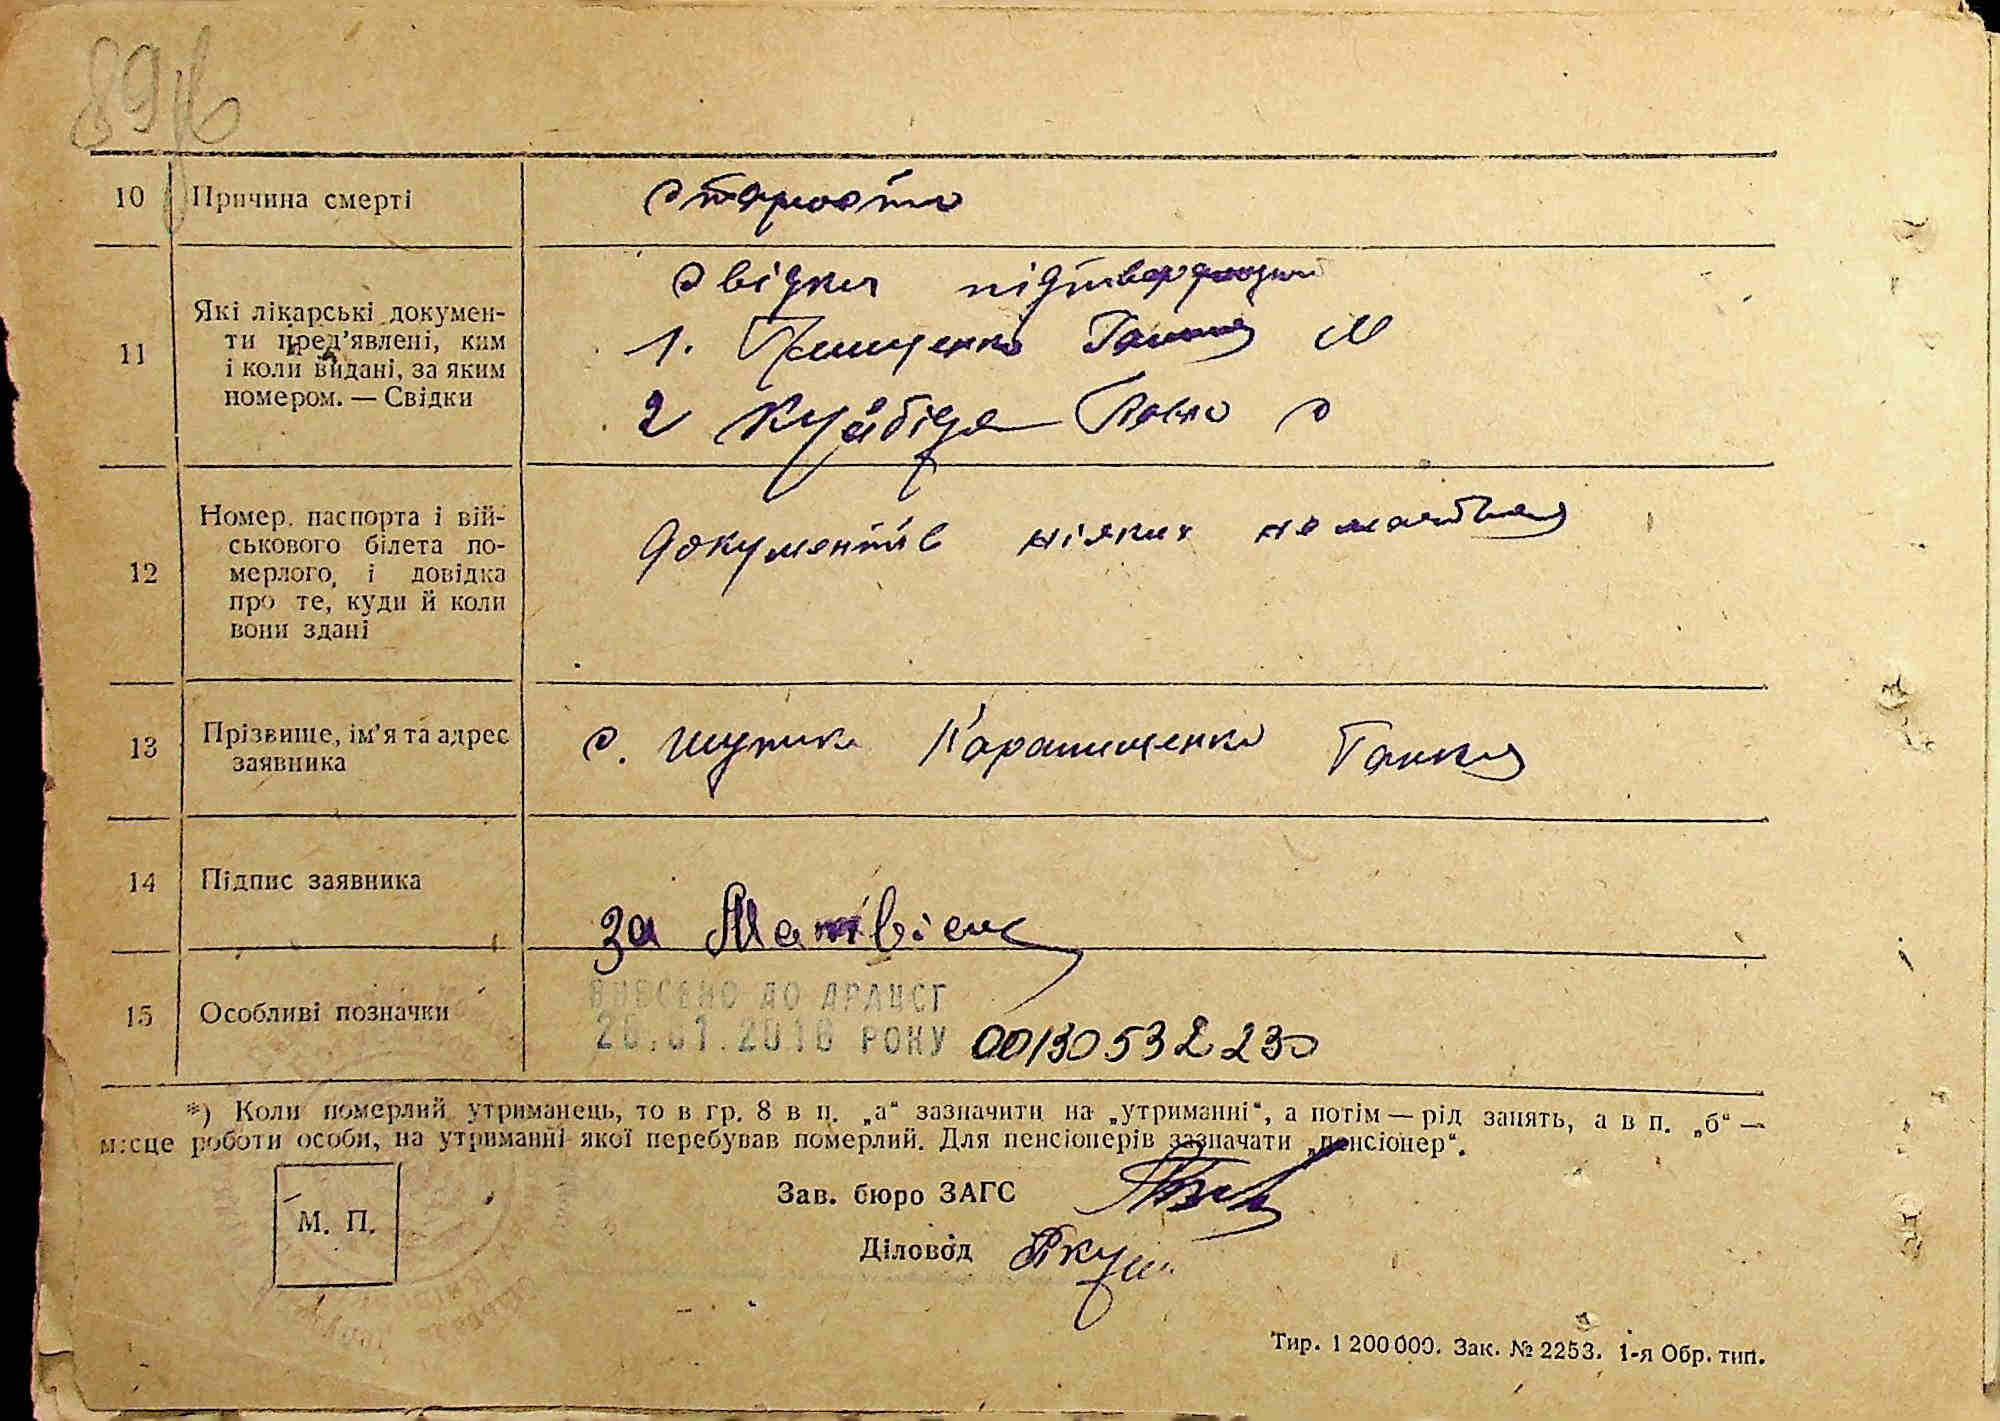 10 Причина смерті старость
11 Які лікарські докумен-
ти пред’явлені, ким
і коли видані, за яким
номером. — Свідки
Свідки підтверджують
1. Ганна М
2 Куйбіда Павло С
12 Номер паспорта і вій-
ськового білета по-
мерлого і довідка
про те, куди й коли
вони здані
документів ніяких
13 Прізвище, ім’я та адрес
заявника
с. Карапищенко Ганна
14 Підпис заявника
за
15 Особливі позначки
ВНЕСЕНО ДО ДРАЦСГ
РОКУ 00130532230
*) Коли померлий утриманець, то в гр. 8 в п. „а“ зазначити на „утриманні“, а потім — рід занять, а в п. „б“ —
місце роботи особи, на утриманні якої перебував померлий. Для пенсіонерів зазначати „пенсіонер“.
М. П.
Зав. бюро ЗАГС
Діловод
Тир. 1 200 000. Зак. № 2253. 1-я Обр. тип.